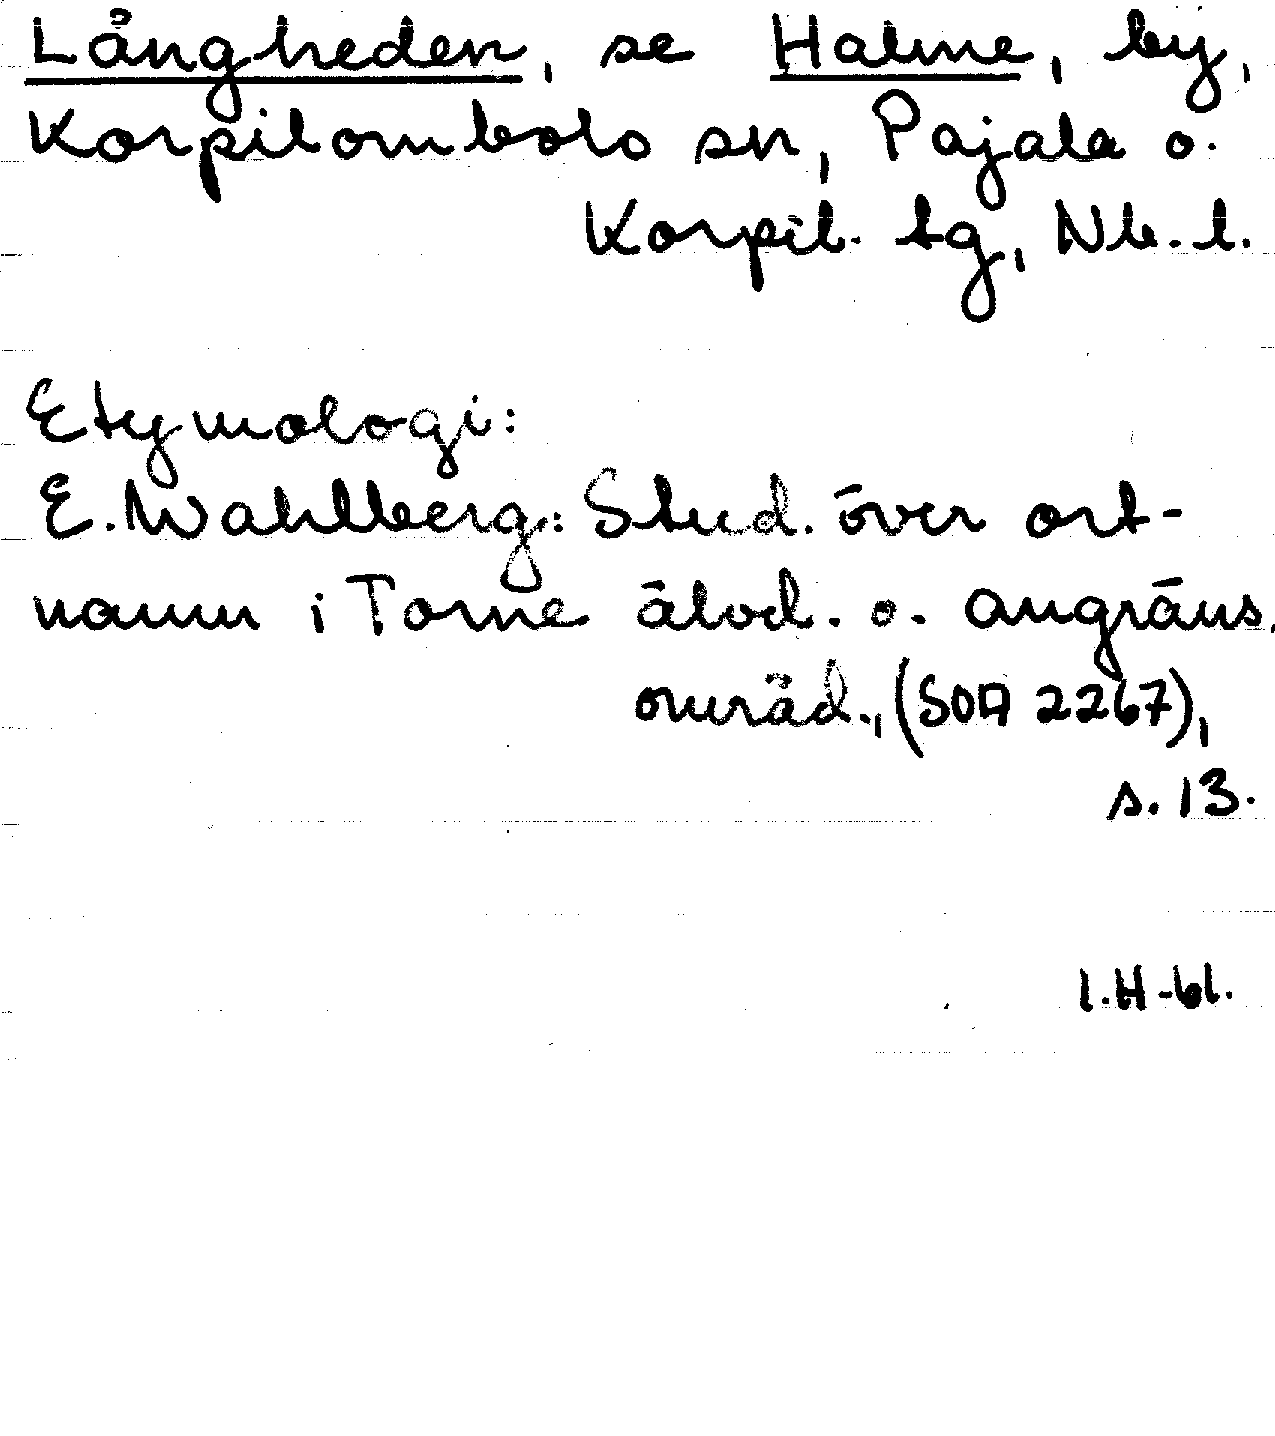 Långheden, se Halme, by,
Korpilombolo sn, Pajala o.
Korpil. tg, Nb. l.
Etymologi:
E. Wahlberg: Stud. över ort-
namn i Torne älvd. o. angräns.
områd., (SOA 2267),
s. 13.
I.H-bl.